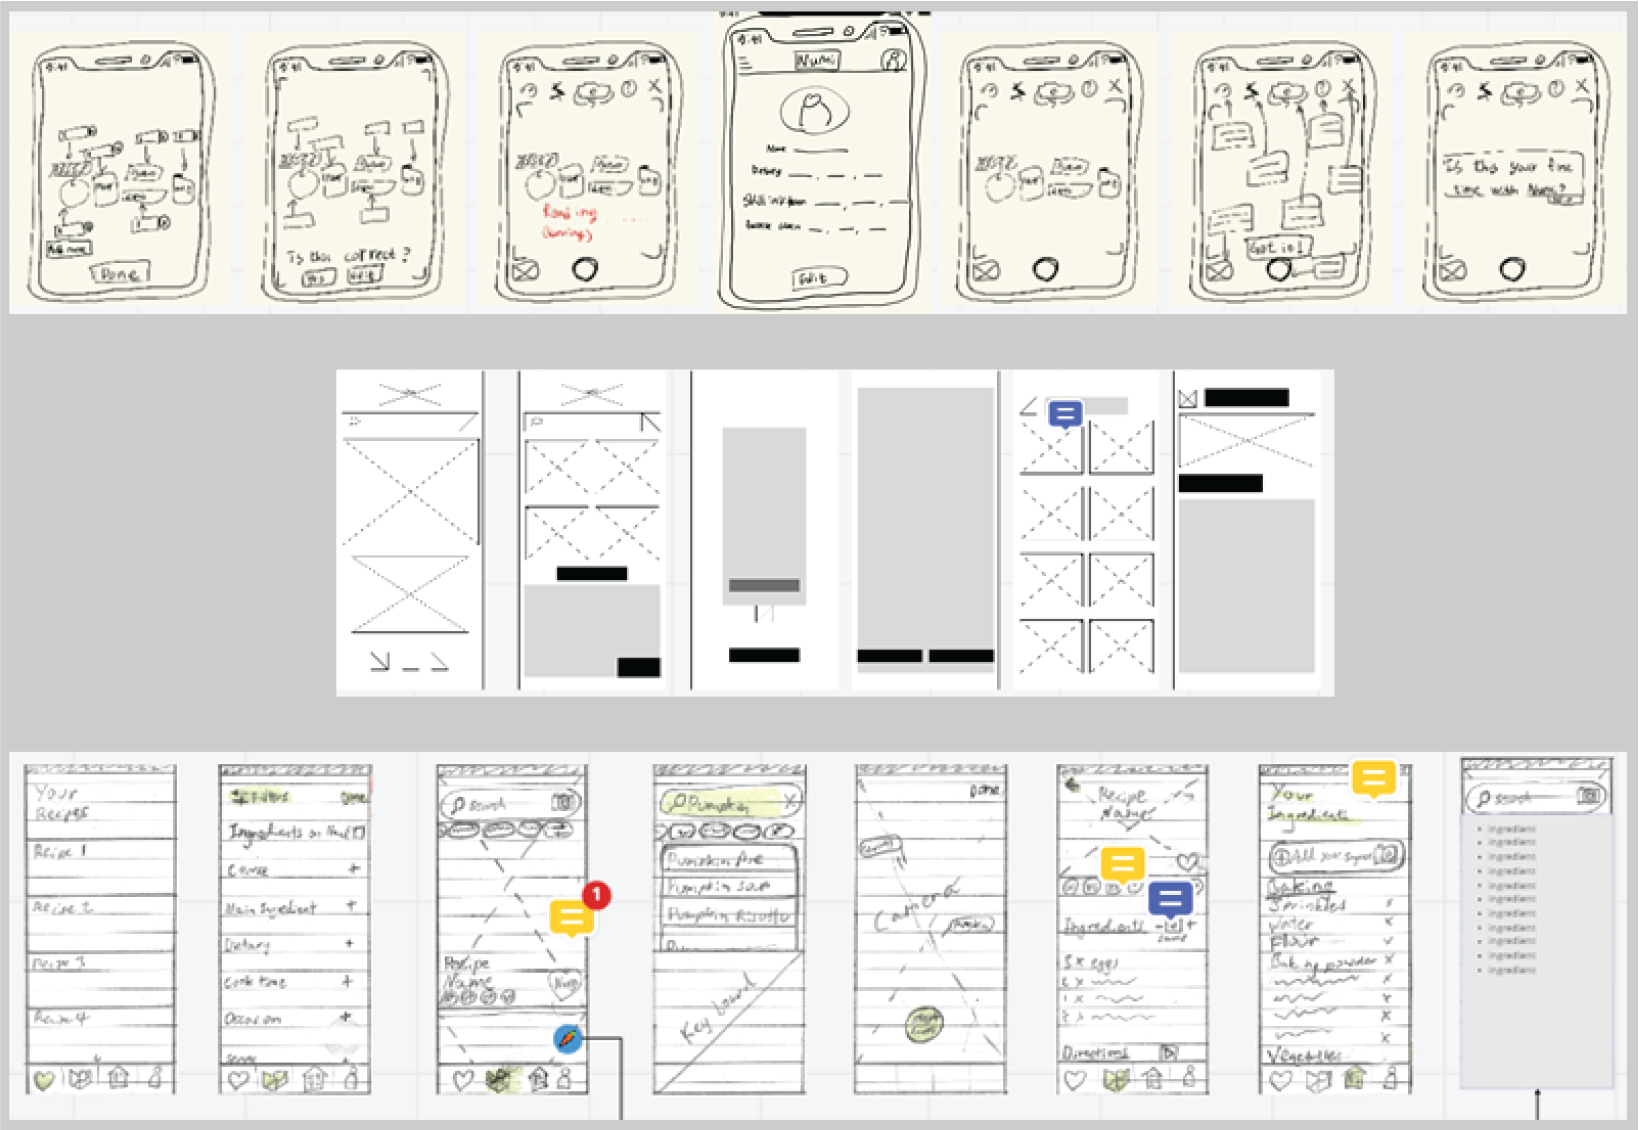 9:41
Done
9:41
Is this correct?
Yes
Edit
9:41
Loading
9:41
Numi
Name
Dietary
Edit
9:41
9:41
Got it!
9:41
Is this your first
time with Numi?
Your
Recipes
Recipe 1
Recipe 2
Recipe 3
Recipe 4
Filters
Done
Ingredients on Hand
Course
Main Ingredient
Dietary
Cook time
Occasion
search
1
Recipe
Name
Pumpkin
Pumpkin Pie
Pumpkin Soup
Pumpkin Risotto
Keyboard
Done
Camera
Recipe
Name
Ingredients
3 x eggs
2 x
1 x
Directions
Your
Ingredients
Baking
Sprinkles
Water
Flour
Baking powder
Vegetables
search
ingredient
ingredient
ingredient
ingredient
ingredient
ingredient
ingredient
ingredient
ingredient
ingredient
ingredient